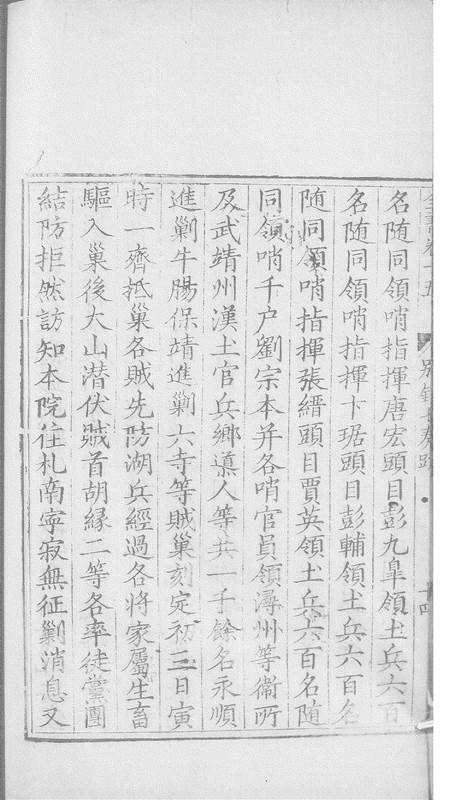 名随同領哨指揮唐宏頭目彭九臯領土兵六百
名随同領哨指揮卞琚頭目彭輔領土兵六百名
随同領哨指揮張縉頭目賈英領土兵六百名随
同領哨千户劉宗本并各哨官員領潯州等衞所
及武靖州漢土官兵鄉導人等共一千餘名永順
進剿牛腸保靖進剿六寺等賊巢刻定初三日寅
時一齊抵巢各賊先防湖兵經過各將家屬生畜
驅入巢後大山潜伏賊首胡縁二等各率徒黨團
結防拒然訪知本院住札南寧寂無征剿消息又